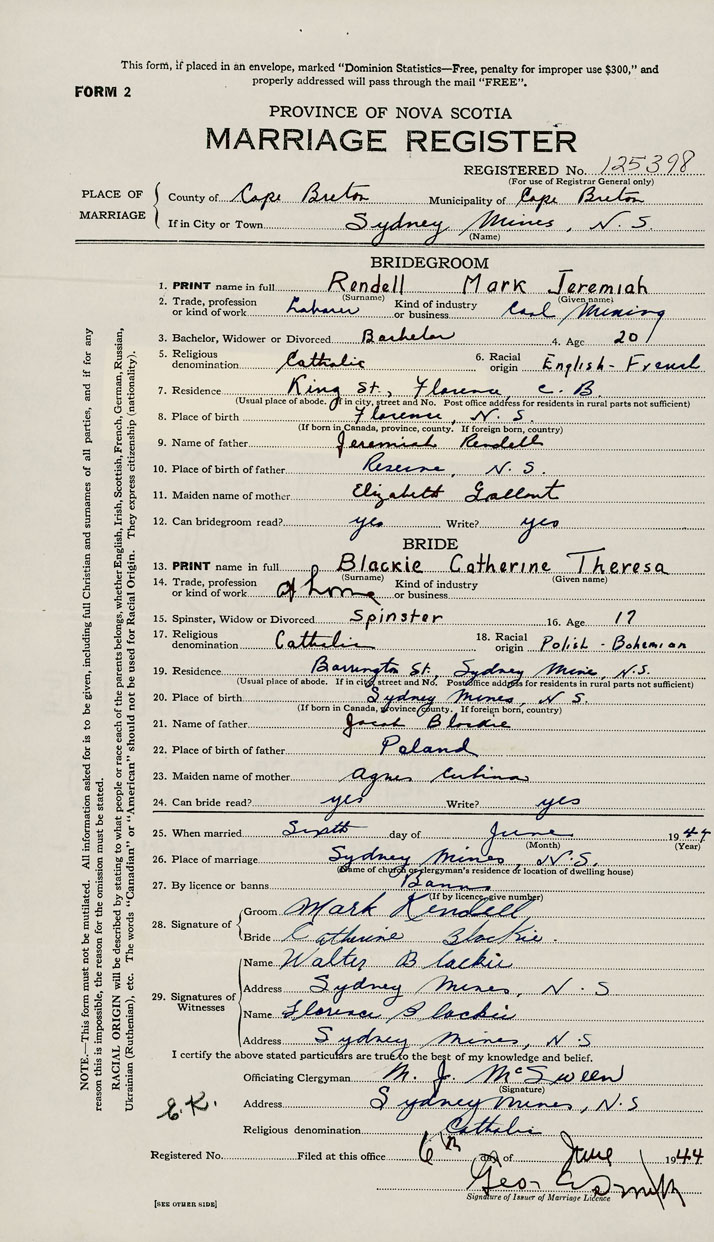 This form, if placed in an envelope, marked "Dominion Statistics—Free, penalty for improper use $300," and
properly addressed will pass through the mail "FREE".
FORM 2
PROVINCE OF NOVA SCOTIA
MARRIAGE REGISTER
REGISTERED No. 125398
(For use of Registrar General only)
PLACE OF MARRIAGE
County of Cape Breton Municipality of Cape Breton
If in City or Town Sydney Mines, N. S.
(Name)
BRIDEGROOM
1. PRINT name in full Rendell Mark Jeremiah
(Surname) (Given name)
2. Trade, profession or kind of work Laborer Kind of industry or business Coal Mining
3. Bachelor, Widower or Divorced Bachelor 4. Age 20
5. Religious denomination Catholic 6. Racial origin English - French
7. Residence King St., Florence, C. B.
(Usual place of abode. If in city, street and No. Post office address for residents in rural parts not sufficient)
8. Place of birth Florence, N. S.
(If born in Canada, province, county. If foreign born, country)
9. Name of father Jeremiah Rendell
10. Place of birth of father Reserve, N. S.
11. Maiden name of mother Elizabeth Gallant
12. Can bridegroom read? yes Write? yes
BRIDE
13. PRINT name in full Blackie Catherine Theresa
(Surname) (Given name)
14. Trade, profession or kind of work at home Kind of industry or business
15. Spinster, Widow or Divorced Spinster 16. Age 17
17. Religious denomination Catholic 18. Racial origin Polish - Bohemian
19. Residence Barrington St., Sydney Mines, N.S.
(Usual place of abode. If in city, street and No. Post office address for residents in rural parts not sufficient)
20. Place of birth Sydney Mines, N. S.
(If born in Canada, province county. If foreign born, country)
21. Name of father Jacob Blackie
22. Place of birth of father Poland
23. Maiden name of mother Agnes
24. Can bride read? yes Write? yes
25. When married Sixth day of June 1944
(Month) (Year)
26. Place of marriage Sydney Mines, N.S.
(Name of church or clergyman's residence or location of dwelling house)
27. By licence or banns Banns
(If by licence, give number)
28. Signature of
Groom Mark Rendell
Bride Catherine Blackie.
29. Signatures of Witnesses
Name Walter Blackie
Address Sydney Mines, N. S
Name Florence Blackie
Address Sydney Mines, N. S
I certify the above stated particulars are true to the best of my knowledge and belief.
Officiating Clergyman M. J. McSween
(Signature)
Address Sydney Mines, N.S
Religious denomination Catholic
Registered No. Filed at this office 6th day of June 1944
Geo Smith
Signature of Issuer of Marriage Licence
[SEE OTHER SIDE]
E.K.
NOTE.—This form must not be mutilated. All information asked for is to be given, including full Christian and surnames of all parties, and if for any
reason this is impossible, the reason for the omission must be stated.
RACIAL ORIGIN will be described by stating to what people or race each of the parents belongs, whether English, Irish, Scottish, French, German, Russian,
Ukrainian (Ruthenian), etc. The words "Canadian" or "American" should not be used for Racial Origin. They express citizenship (nationality).